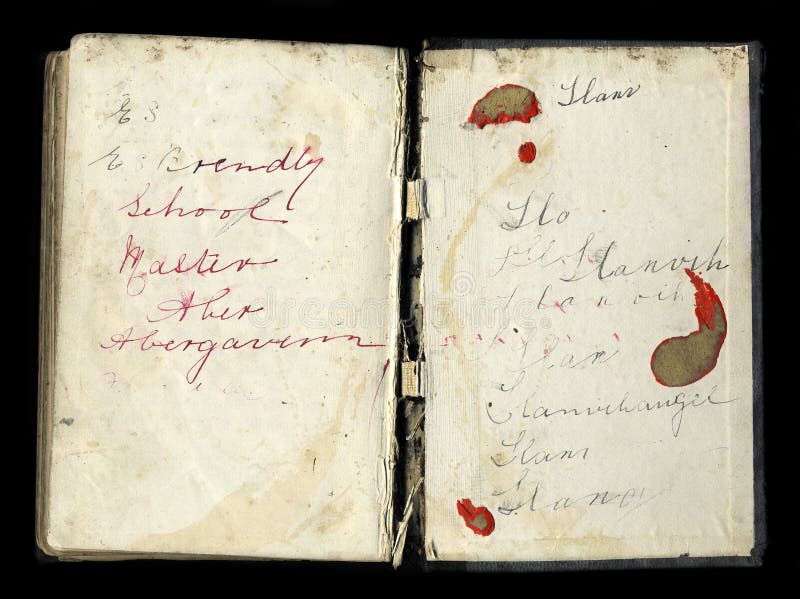 E S
E S Brendly
School
Master
Aber
Abergavenn
Llanv
Llo
Llanvih
Llanvih
Llan
Llanvihangel
Llanv
Llanv
dreamstime